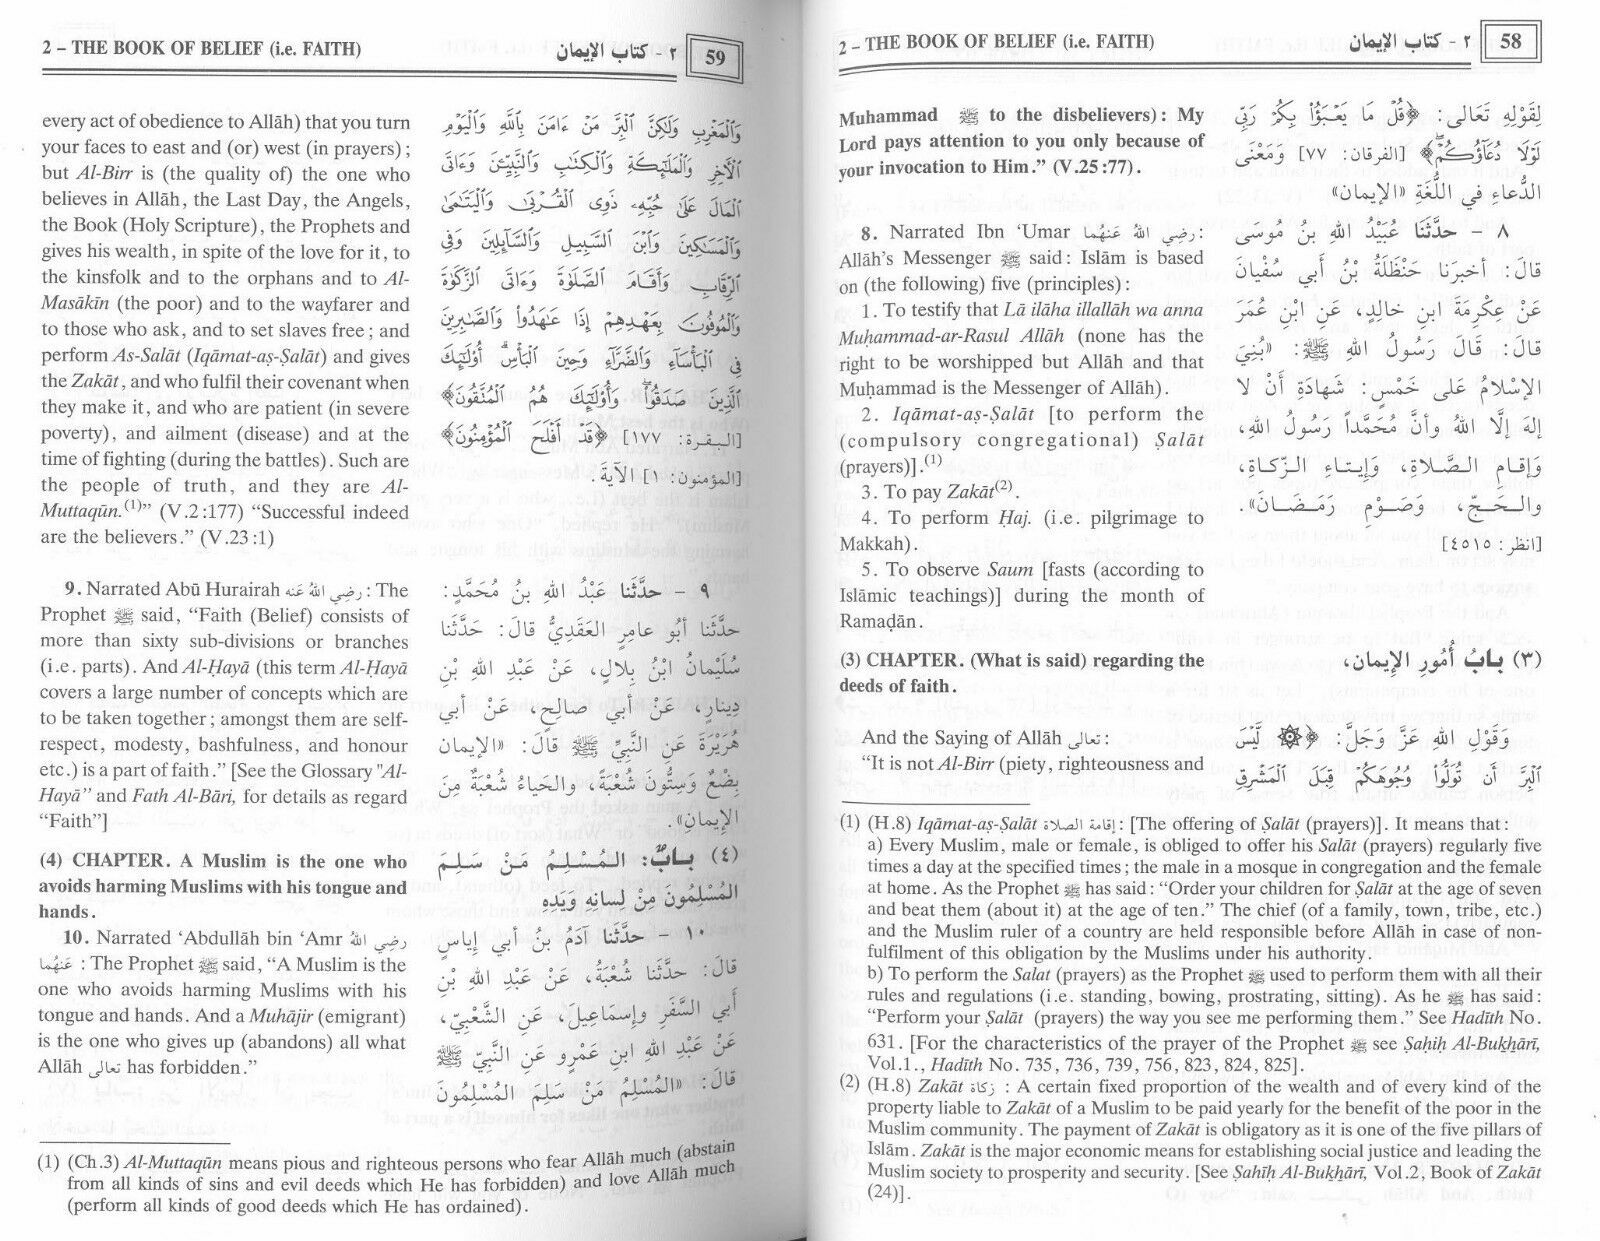 2 – THE BOOK OF BELIEF (i.e. FAITH)
٢ - كتاب الإيمان
58
Muhammad ﷺ to the disbelievers): My
Lord pays attention to you only because of
your invocation to Him.” (V.25:77).
8. Narrated Ibn ‘Umar رضي الله عنهما:
Allāh’s Messenger ﷺ said: Islām is based
on (the following) five (principles):
1. To testify that Lā ilāha illallāh wa anna
Muḥammad-ar-Rasul Allāh (none has the
right to be worshipped but Allāh and that
Muḥammad is the Messenger of Allāh).
2. Iqāmat-aṣ-Ṣalāt [to perform the
(compulsory congregational) Ṣalāt
(prayers)].(1)
3. To pay Zakāt(2).
4. To perform Ḥaj. (i.e. pilgrimage to
Makkah).
5. To observe Saum [fasts (according to
Islāmic teachings)] during the month of
Ramaḍān.
(3) CHAPTER. (What is said) regarding the
deeds of faith.
And the Saying of Allāh تعالى:
“It is not Al-Birr (piety, righteousness and
لِقَوْلِهِ تَعَالى: ﴿قُلْ مَا يَعْبَؤُا بِكُمْ رَبِّي
لَوْلَا دُعَآؤُكُمْ﴾ [الفرقان: ٧٧] وَمَعْنَى
الدُّعاءِ في اللُّغَةِ «الإيمان»
٨ - حدَّثنَا عُبَيْدُ اللهِ بنُ مُوسَى
قالَ: أخبرَنا حَنْظَلَةُ بْنُ أبي سُفْيانَ
عَنْ عِكْرِمَةَ ابنِ خالِدٍ، عَنِ ابْنِ عُمَرَ
قالَ: قالَ رَسُولُ اللهِ ﷺ: «بُنِيَ
الإسْلامُ على خَمْسٍ: شَهادَةِ أَنْ لا
إلهَ إلَّا اللهُ وأنَّ مُحَمَّداً رَسُولُ اللهِ،
وَإقامِ الصَّلاةِ، وَإيتاءِ الزَّكاةِ،
والحَجِّ، وَصَوْمِ رَمَضَانَ».
[انظر: ٤٥١٥]
(٣) بابُ أُمُورِ الإيمانِ،
وَقَوْلِ اللهِ عَزَّ وَجَلَّ: ﴿لَيْسَ
الْبِرَّ أَن تُوَلُّوا وُجُوهَكُمْ قِبَلَ الْمَشْرِقِ
(1) (H.8) Iqāmat-aṣ-Ṣalāt إقامة الصلاة: [The offering of Ṣalāt (prayers)]. It means that:
a) Every Muslim, male or female, is obliged to offer his Ṣalāt (prayers) regularly five
times a day at the specified times; the male in a mosque in congregation and the female
at home. As the Prophet ﷺ has said: “Order your children for Ṣalāt at the age of seven
and beat them (about it) at the age of ten.” The chief (of a family, town, tribe, etc.)
and the Muslim ruler of a country are held responsible before Allāh in case of non-
fulfilment of this obligation by the Muslims under his authority.
b) To perform the Salat (prayers) as the Prophet ﷺ used to perform them with all their
rules and regulations (i.e. standing, bowing, prostrating, sitting). As he ﷺ has said:
“Perform your Ṣalāt (prayers) the way you see me performing them.” See Hadīth No.
631. [For the characteristics of the prayer of the Prophet ﷺ see Ṣaḥiḥ Al-Bukhārī,
Vol.1., Hadīth No. 735, 736, 739, 756, 823, 824, 825].
(2) (H.8) Zakāt زكاة : A certain fixed proportion of the wealth and of every kind of the
property liable to Zakāt of a Muslim to be paid yearly for the benefit of the poor in the
Muslim community. The payment of Zakāt is obligatory as it is one of the five pillars of
Islām. Zakāt is the major economic means for establishing social justice and leading the
Muslim society to prosperity and security. [See Ṣaḥīḥ Al-Bukhārī, Vol.2, Book of Zakāt
(24)].
2 – THE BOOK OF BELIEF (i.e. FAITH)
٢ - كتاب الإيمان
59
every act of obedience to Allāh) that you turn
your faces to east and (or) west (in prayers);
but Al-Birr is (the quality of) the one who
believes in Allāh, the Last Day, the Angels,
the Book (Holy Scripture), the Prophets and
gives his wealth, in spite of the love for it, to
the kinsfolk and to the orphans and to Al-
Masākīn (the poor) and to the wayfarer and
to those who ask, and to set slaves free; and
perform As-Salāt (Iqāmat-aṣ-Ṣalāt) and gives
the Zakāt, and who fulfil their covenant when
they make it, and who are patient (in severe
poverty), and ailment (disease) and at the
time of fighting (during the battles). Such are
the people of truth, and they are Al-
Muttaqūn.(1)” (V.2:177) “Successful indeed
are the believers.” (V.23:1)
9. Narrated Abū Hurairah رضي الله عنه: The
Prophet ﷺ said, “Faith (Belief) consists of
more than sixty sub-divisions or branches
(i.e. parts). And Al-Ḥayā (this term Al-Ḥayā
covers a large number of concepts which are
to be taken together; amongst them are self-
respect, modesty, bashfulness, and honour
etc.) is a part of faith.” [See the Glossary "Al-
Hayā” and Fath Al-Bāri, for details as regard
“Faith”]
(4) CHAPTER. A Muslim is the one who
avoids harming Muslims with his tongue and
hands.
10. Narrated ‘Abdullāh bin ‘Amr رضي الله
عنهما : The Prophet ﷺ said, “A Muslim is the
one who avoids harming Muslims with his
tongue and hands. And a Muhājir (emigrant)
is the one who gives up (abandons) all what
Allāh تعالى has forbidden.”
وَالْمَغْرِبِ وَلَٰكِنَّ الْبِرَّ مَنْ ءَامَنَ بِاللَّهِ وَالْيَوْمِ
الْآخِرِ وَالْمَلَٰٓئِكَةِ وَالْكِتَٰبِ وَالنَّبِيِّۦنَ وَءَاتَى
الْمَالَ عَلَىٰ حُبِّهِۦ ذَوِى الْقُرْبَىٰ وَالْيَتَٰمَىٰ
وَالْمَسَٰكِينَ وَابْنَ السَّبِيلِ وَالسَّآئِلِينَ وَفِى
الرِّقَابِ وَأَقَامَ الصَّلَوٰةَ وَءَاتَى الزَّكَوٰةَ
وَالْمُوفُونَ بِعَهْدِهِمْ إِذَا عَٰهَدُوا وَالصَّٰبِرِينَ
فِى الْبَأْسَآءِ وَالضَّرَّآءِ وَحِينَ الْبَأْسِ أُولَٰٓئِكَ
الَّذِينَ صَدَقُوا وَأُولَٰٓئِكَ هُمُ الْمُتَّقُونَ﴾
[البقرة: ١٧٧] ﴿قَدْ أَفْلَحَ الْمُؤْمِنُونَ﴾
[المؤمنون: ١] الآيَةَ.
٩ - حدَّثنا عَبْدُ اللهِ بنُ مُحَمَّدٍ:
حدَّثَنا أبُو عامِرٍ العَقَدِيُّ قالَ: حَدَّثَنَا
سُلَيْمانُ ابْنُ بِلالٍ، عَنْ عَبْدِ اللهِ بْنِ
دِينارٍ، عَنْ أبي صالِحٍ، عَنْ أبي
هُرَيْرَةَ عَنِ النَّبِيِّ ﷺ قالَ: «الإيمان
بِضْعٌ وَسِتُّونَ شُعْبَةً، والحَياءُ شُعْبَةٌ مِنَ
الإيمانِ».
(٤) بابٌ: المُسْلِمُ مَنْ سَلِمَ
المُسْلِمُونَ مِنْ لِسانِهِ وَيَدِهِ
١٠ - حدَّثنا آدَمُ بنُ أبي إياسٍ
قالَ: حدَّثنا شُعْبَةُ، عَنْ عَبْدِ اللهِ بْنِ
أبي السَّفَرِ وإسْمَاعِيلَ، عَنِ الشَّعْبِيِّ،
عَنْ عَبْدِ اللهِ ابنِ عَمْرٍو عَنِ النَّبِيِّ ﷺ
قالَ: «المُسْلِمُ مَنْ سَلِمَ المُسْلِمُونَ
(1) (Ch.3) Al-Muttaqūn means pious and righteous persons who fear Allāh much (abstain
from all kinds of sins and evil deeds which He has forbidden) and love Allāh much
(perform all kinds of good deeds which He has ordained).